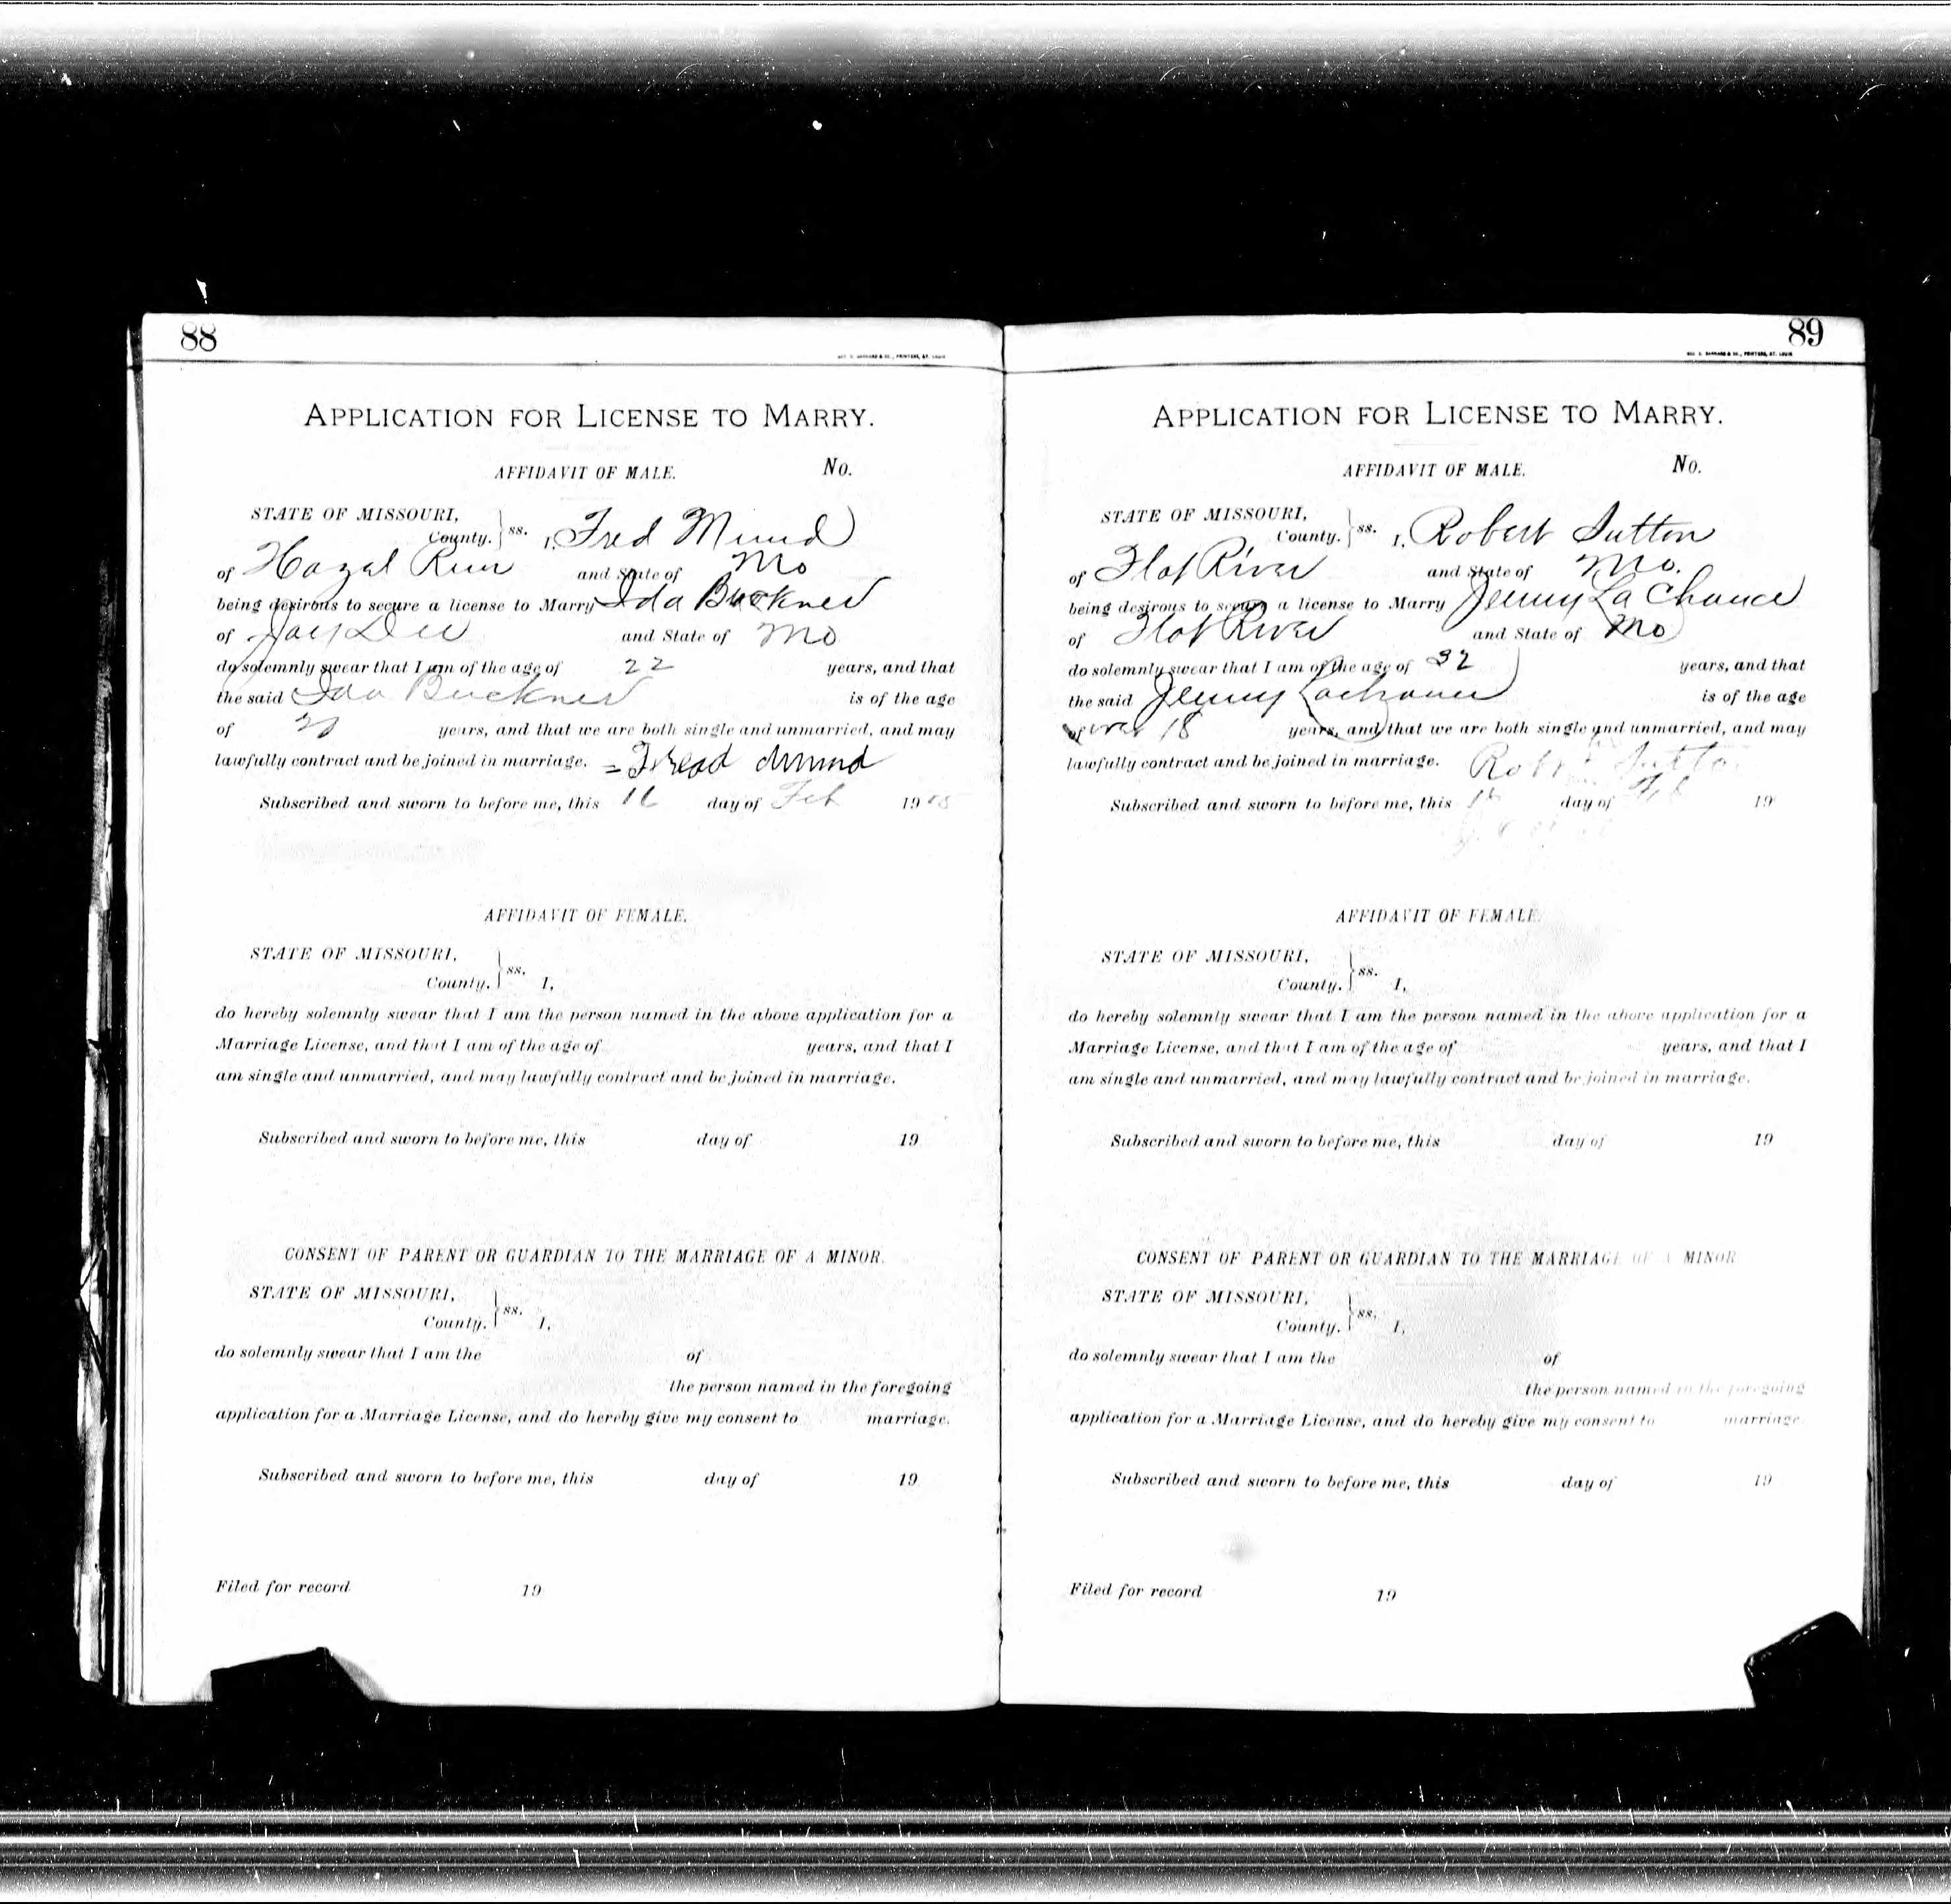 88
GEO. D. BARNARD & CO., PRINTERS, ST. LOUIS
APPLICATION FOR LICENSE TO MARRY.
AFFIDAVIT OF MALE. No.
STATE OF MISSOURI,
County. } ss. I, Fred Mund
of Hazel Run and State of Mo
being desirous to secure a license to Marry Ida Buckner
of and State of Mo
do solemnly swear that I am of the age of 22 years, and that
the said Ida Buckner is of the age
of years, and that we are both single and unmarried, and may
lawfully contract and be joined in marriage.
Subscribed and sworn to before me, this 16 day of Feb 1905
AFFIDAVIT OF FEMALE.
STATE OF MISSOURI,
County. } ss. I,
do hereby solemnly swear that I am the person named in the above application for a
Marriage License, and that I am of the age of years, and that I
am single and unmarried, and may lawfully contract and be joined in marriage.
Subscribed and sworn to before me, this day of 19
CONSENT OF PARENT OR GUARDIAN TO THE MARRIAGE OF A MINOR.
STATE OF MISSOURI,
County. } ss. I,
do solemnly swear that I am the of
the person named in the foregoing
application for a Marriage License, and do hereby give my consent to marriage.
Subscribed and sworn to before me, this day of 19
Filed for record 19
89
GEO. D. BARNARD & CO., PRINTERS, ST. LOUIS
APPLICATION FOR LICENSE TO MARRY.
AFFIDAVIT OF MALE. No.
STATE OF MISSOURI,
County. } ss. I, Robert Sutton
of Flat River and State of Mo.
being desirous to secure a license to Marry Jenny La Chance
of Flat River and State of Mo
do solemnly swear that I am of the age of 32 years, and that
the said Jenny Lachance is of the age
of over 18 years, and that we are both single and unmarried, and may
lawfully contract and be joined in marriage. Robt Sutton
Subscribed and sworn to before me, this day of Feb 19
AFFIDAVIT OF FEMALE.
STATE OF MISSOURI,
County. } ss. I,
do hereby solemnly swear that I am the person named in the above application for a
Marriage License, and that I am of the age of years, and that I
am single and unmarried, and may lawfully contract and be joined in marriage.
Subscribed and sworn to before me, this day of 19
CONSENT OF PARENT OR GUARDIAN TO THE MARRIAGE OF A MINOR
STATE OF MISSOURI,
County. } ss. I,
do solemnly swear that I am the of
the person named in the foregoing
application for a Marriage License, and do hereby give my consent to marriage.
Subscribed and sworn to before me, this day of 19
Filed for record 19